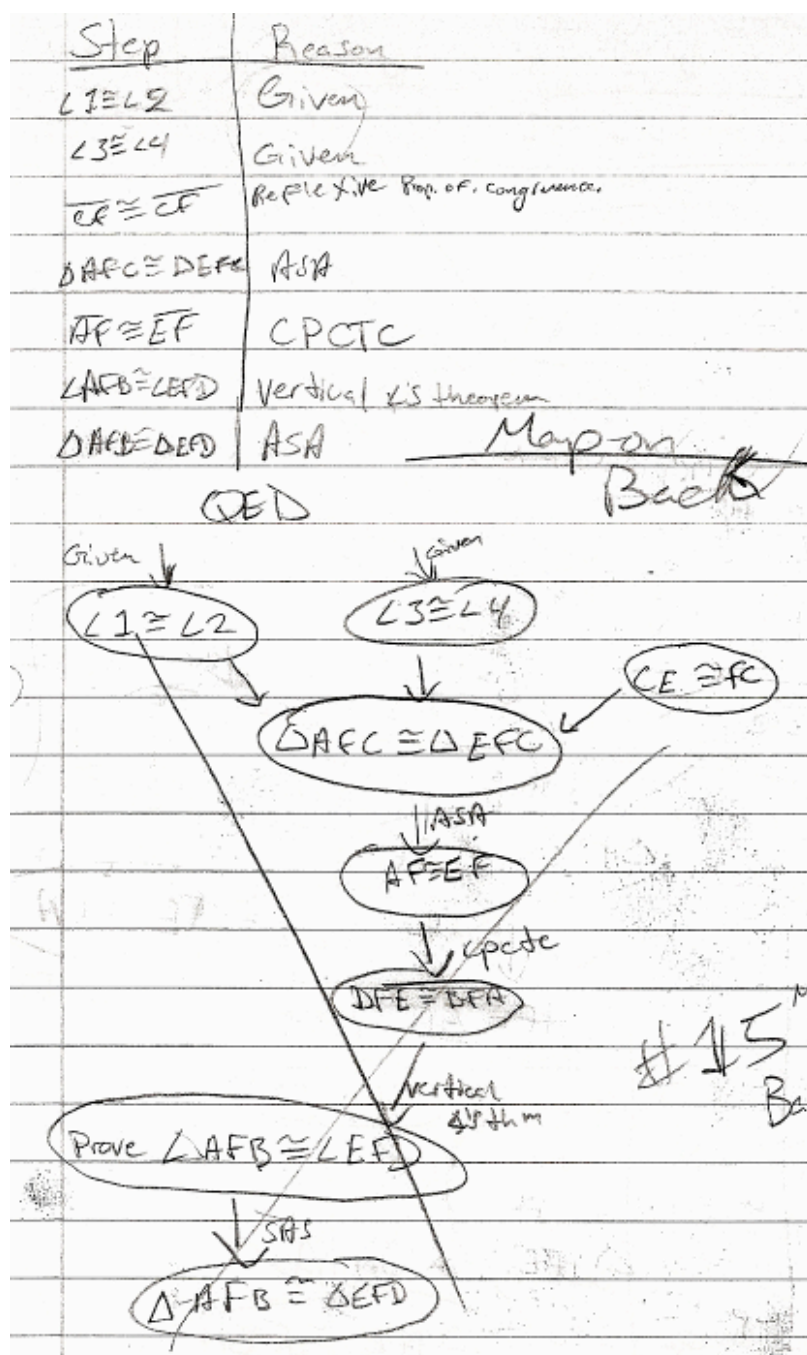 Step Reason
∠1≅∠2 Given
∠3≅∠4 Given
CF≅CF Reflexive Prop. of. congruence.
ΔAFC≅DEFC ASA
AF≅EF CPCTC
∠AFB≅∠EFD Vertical ∡'s theorem
ΔAFB≅ΔEFD ASA
Map-on
Back
QED
Given Given
∠1≅∠2 ∠3≅∠4
CE≅FC
ΔAFC≅ΔEFC
ASA
AF≅EF
cpctc
DFE≅BFA
#15
Vertical
∡'s thm
Ba
Prove ∠AFB≅∠EFD
SAS
Δ AFB≅ΔEFD